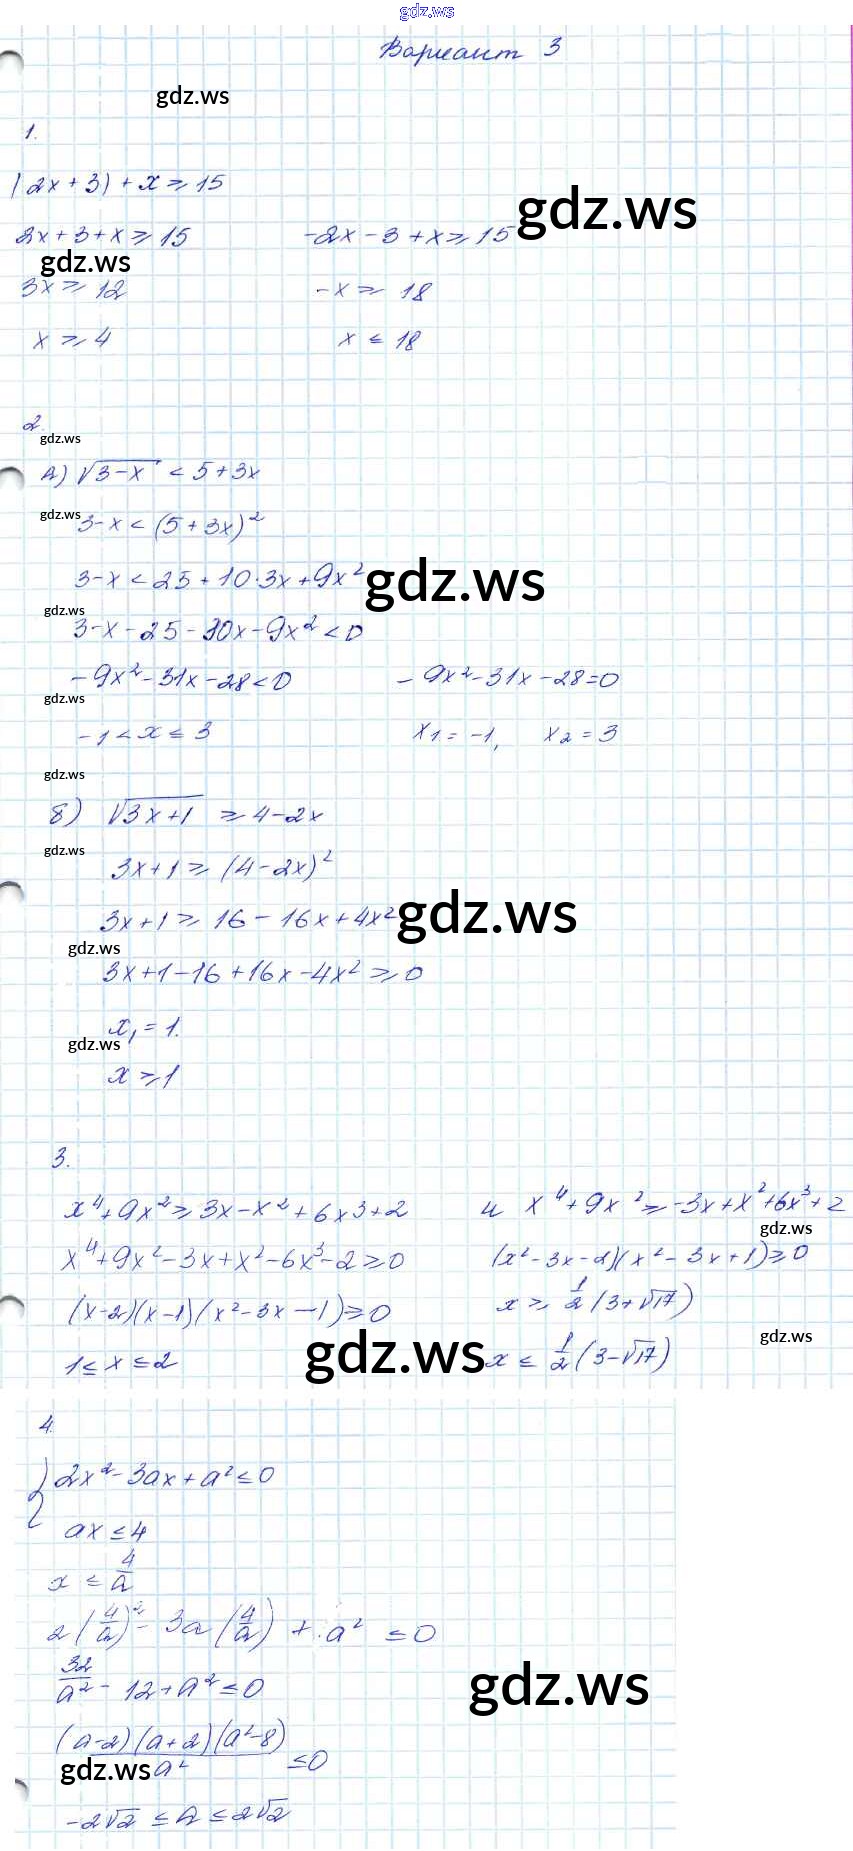 gdz.ws
Вариант 3
gdz.ws
1.
|2x + 3) + x ⩾ 15
gdz.ws
2x + 3 + x ⩾ 15    -2x - 3 + x ⩾ 15
gdz.ws
3x ⩾ 12    -x ⩾ 18
x ⩾ 4    x ≤ 18
2.
gdz.ws
А) √3-x < 5 + 3x
gdz.ws
3-x < (5 + 3x)²
3-x < 25 + 10·3x + 9x²
gdz.ws
gdz.ws
3-x - 25 - 30x - 9x² < 0
-9x² - 31x - 28 < 0    -9x² - 31x - 28 = 0
gdz.ws
-1 < x ≤ 3    x₁ = -1, x₂ = 3
gdz.ws
б) √3x+1 ⩾ 4-2x
gdz.ws
3x+1 ⩾ (4-2x)²
3x+1 ⩾ 16 - 16x + 4x²
gdz.ws
gdz.ws
3x+1-16+16x-4x² ⩾ 0
x₁ = 1.
gdz.ws
x ⩾ 1
3.
x⁴+9x² ⩾ 3x-x²+6x³+2    и x⁴+9x² ⩾ -3x+x²+6x³+2
gdz.ws
x⁴+9x²-3x+x²-6x³-2 ⩾ 0    (x²-3x-2)(x²-3x+1) ⩾ 0
(x-2)(x-1)(x²-3x-1) ⩾ 0    x ⩾ 1/2 (3+√17)
gdz.ws
gdz.ws
1 ≤ x ≤ 2    x ≤ 1/2 (3-√17)
4.
{ 2x²-3ax+a² ≤ 0
ax ≤ 4
x ≤ 4/a
2(4/a)² - 3a(4/a) + a² ≤ 0
32/a² - 12 + a² ≤ 0
gdz.ws
(a-2)(a+2)(a²-8)/a² ≤ 0
gdz.ws
-2√2 ≤ a ≤ 2√2